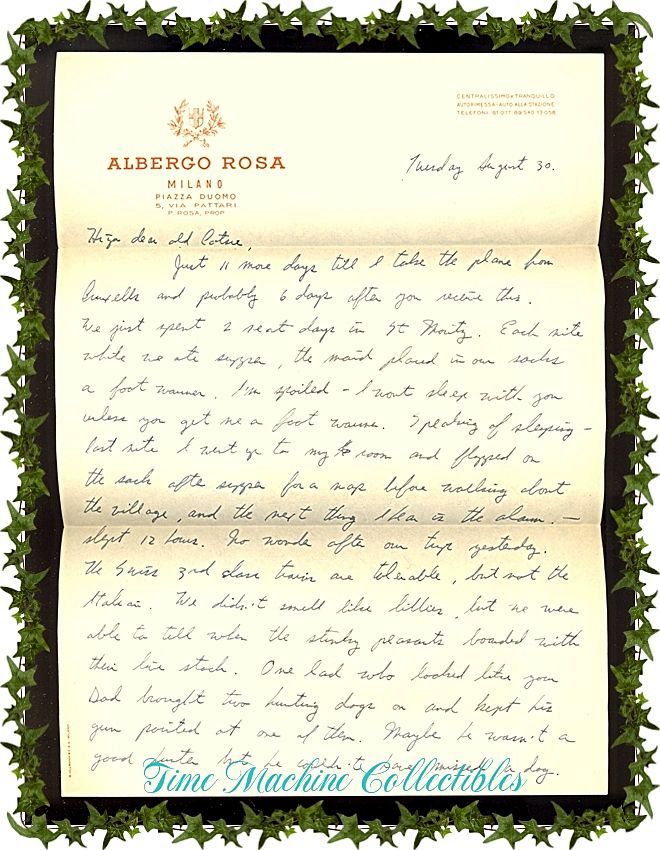 CENTRALISSIMO e TRANQUILLO
AUTORIMESSA - AUTO ALLA STAZIONE
TELEFONI
ALBERGO ROSA
MILANO
PIAZZA DUOMO
5, VIA PATTARI
P. ROSA, PROP.
Tuesday August 30.
Hiya dear old
Just 11 more days till I take the plane from
Bruxells and probably 6 days after you receive this.
We just spent 2 neat days in St Moritz. Each nite
while we ate supper, the maid placed in our sacks
a foot warmer. I'm spoiled - I wont sleep with you
unless you get me a foot warmer. Speaking of sleeping -
last nite I went up to my room and flopped on
the sack after supper for a nap before walking about
the village, and the next thing I hear is the alarm. -
slept 12 hours. No wonder after our trip yesterday.
The Swiss 3rd class trains are tolerable, but not the
Italian. We didn't smell like lillies, but we were
able to tell when the stinky peasants boarded with
their live stock. One lad who looked like your
Dad brought two hunting dogs on and kept his
gun pointed at one of them. Maybe he wasn't a
good hunter but he couldn't have missed a dog.
Time Machine Collectibles